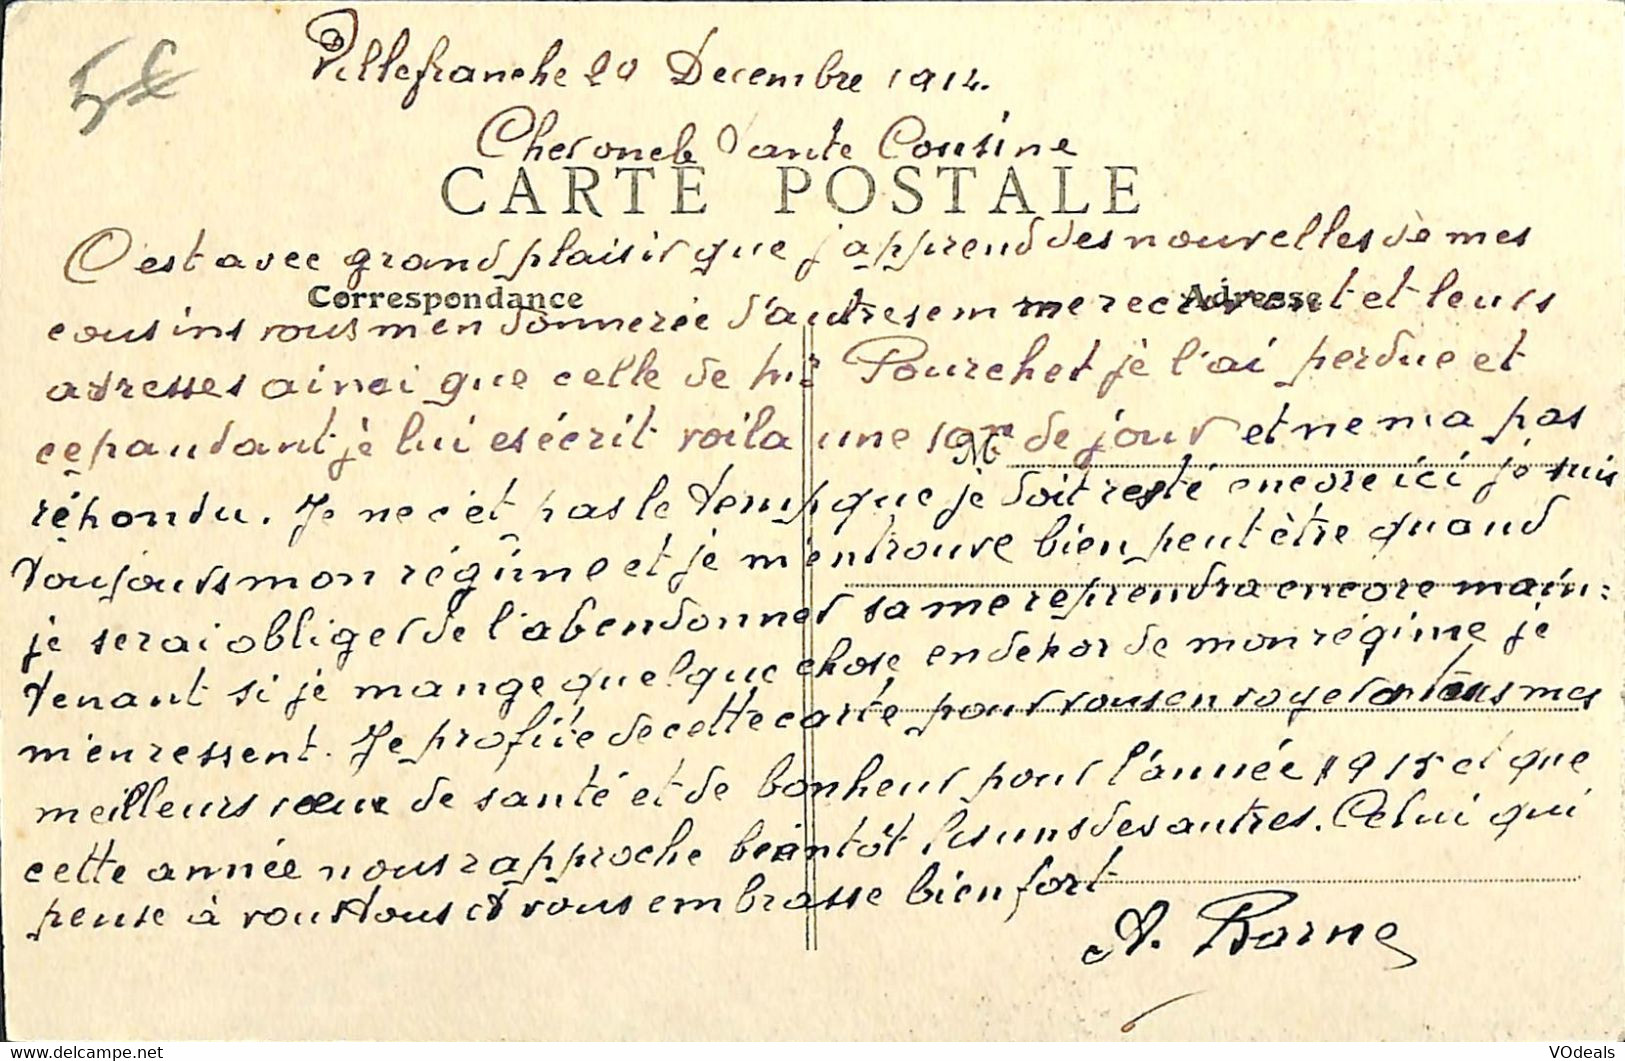 5€
Villefranche 20 Decembre 1914.
Cher oncle Tante Cousine
CARTE POSTALE
C'est avec grand plaisir que j'apprend des nouvelles dè mes
Correspondance
Adresse
cousins vous m'en donnerée d'autres em me recrivant et leurs
adresses ainci que celle de Mr Pourchet jè l'ai perdue et
cepandant jè lui es écrit voila une 10m de jour et ne m'a pas
réhondu. Je ne c'ét pas le temp que je doit resté encore ici je suis
toujours mon régime et je m'en trouve bien peut ètre quand
je serai obliger de l'abendonner sa me reprendra encore main=
tenant si je mange quelque chose en dehor de mon régime je
m'en ressent. Je profite de cette carte pour vous envoyer à tous mes
meilleurs vœux de santé et de bonheur pour l'année 1915 et que
cette année nous rapproche bientôt les uns des autres. Celui qui
pense à vous tous et vous embrasse bien fort
A. Borne
VOdeals
https://www.delcampe.net